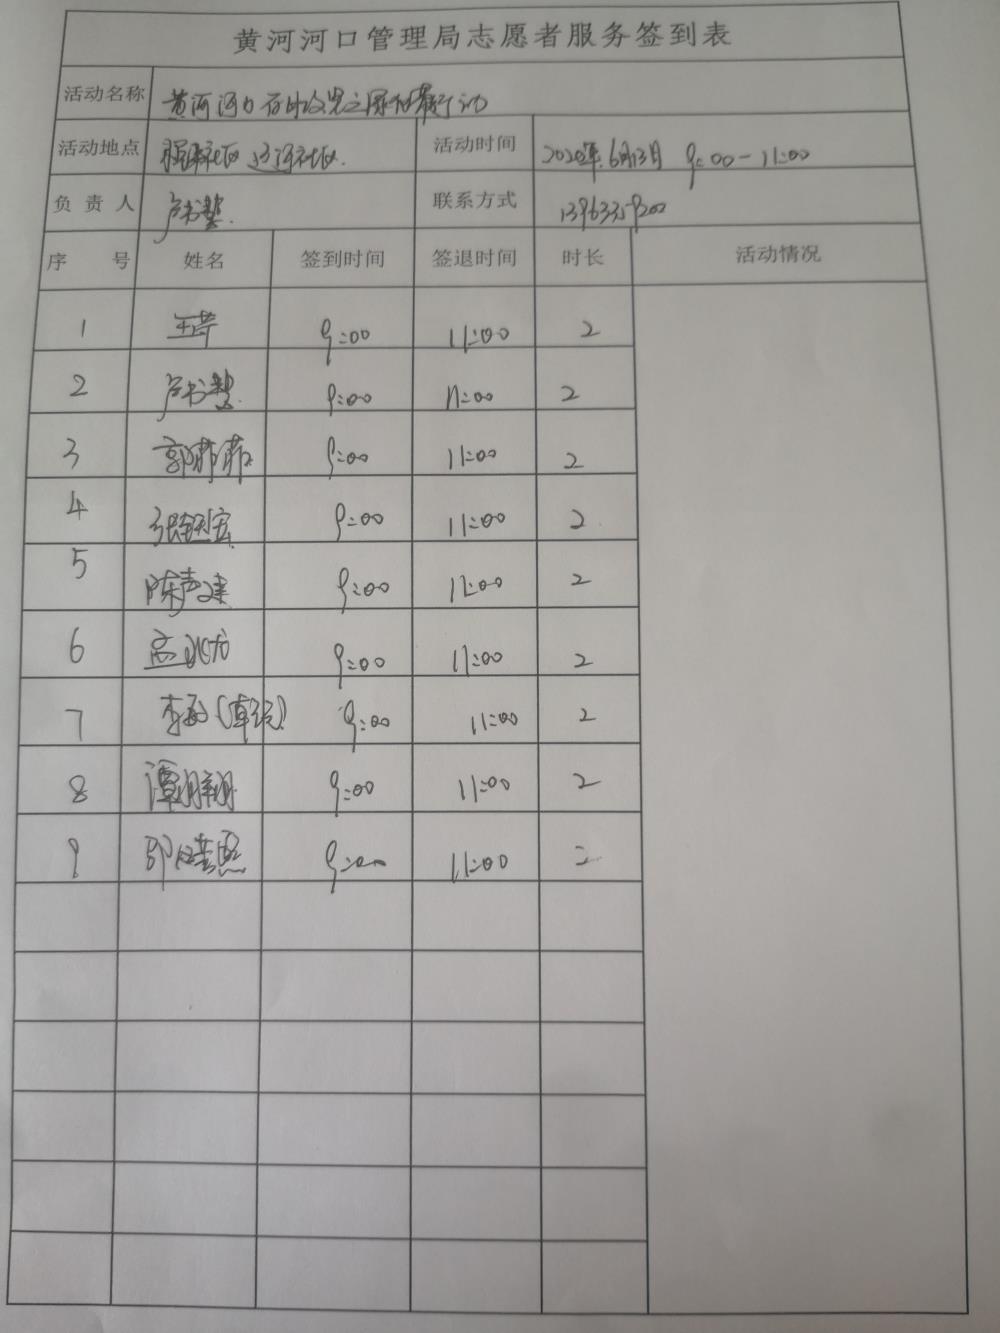 黄河河口管理局志愿者服务签到表
活动名称 黄河河口
活动地点 社区 社区 活动时间 2020年6月13日 9:00-11:00
负责人 卢书慧 联系方式
序号 姓名 签到时间 签退时间 时长 活动情况
1 9:00 11:00 2
2 卢书慧 9:00 11:00 2
3 郭菲菲 9:00 11:00 2
4 张钰宝 9:00 11:00 2
5 陈声建 9:00 11:00 2
6 高 9:00 11:00 2
7 李敏 9:00 11:00 2
8 谭翔翔 9:00 11:00 2
9 9:00 11:00 2